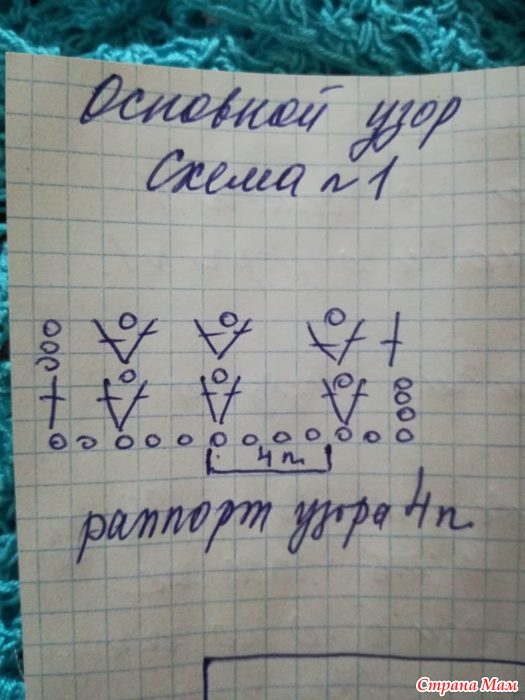 Основной узор
Схема №1
4 п.
раппорт узора 4п.
Страна Мам